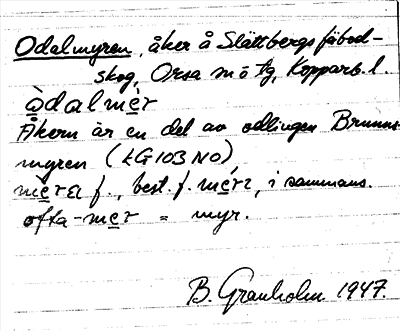 Odalmyren, åker å Slättbergs fäbod-
skog, Orsa sn o tg, Kopparb. l.
òdalmèr
Åkern är en del av odlingen Brunns-
myren (LG103 NO)
mèrɛ f., best. f. mérɩ, i sammans.
ofta -mer = myr.
B. Granholm 1947.